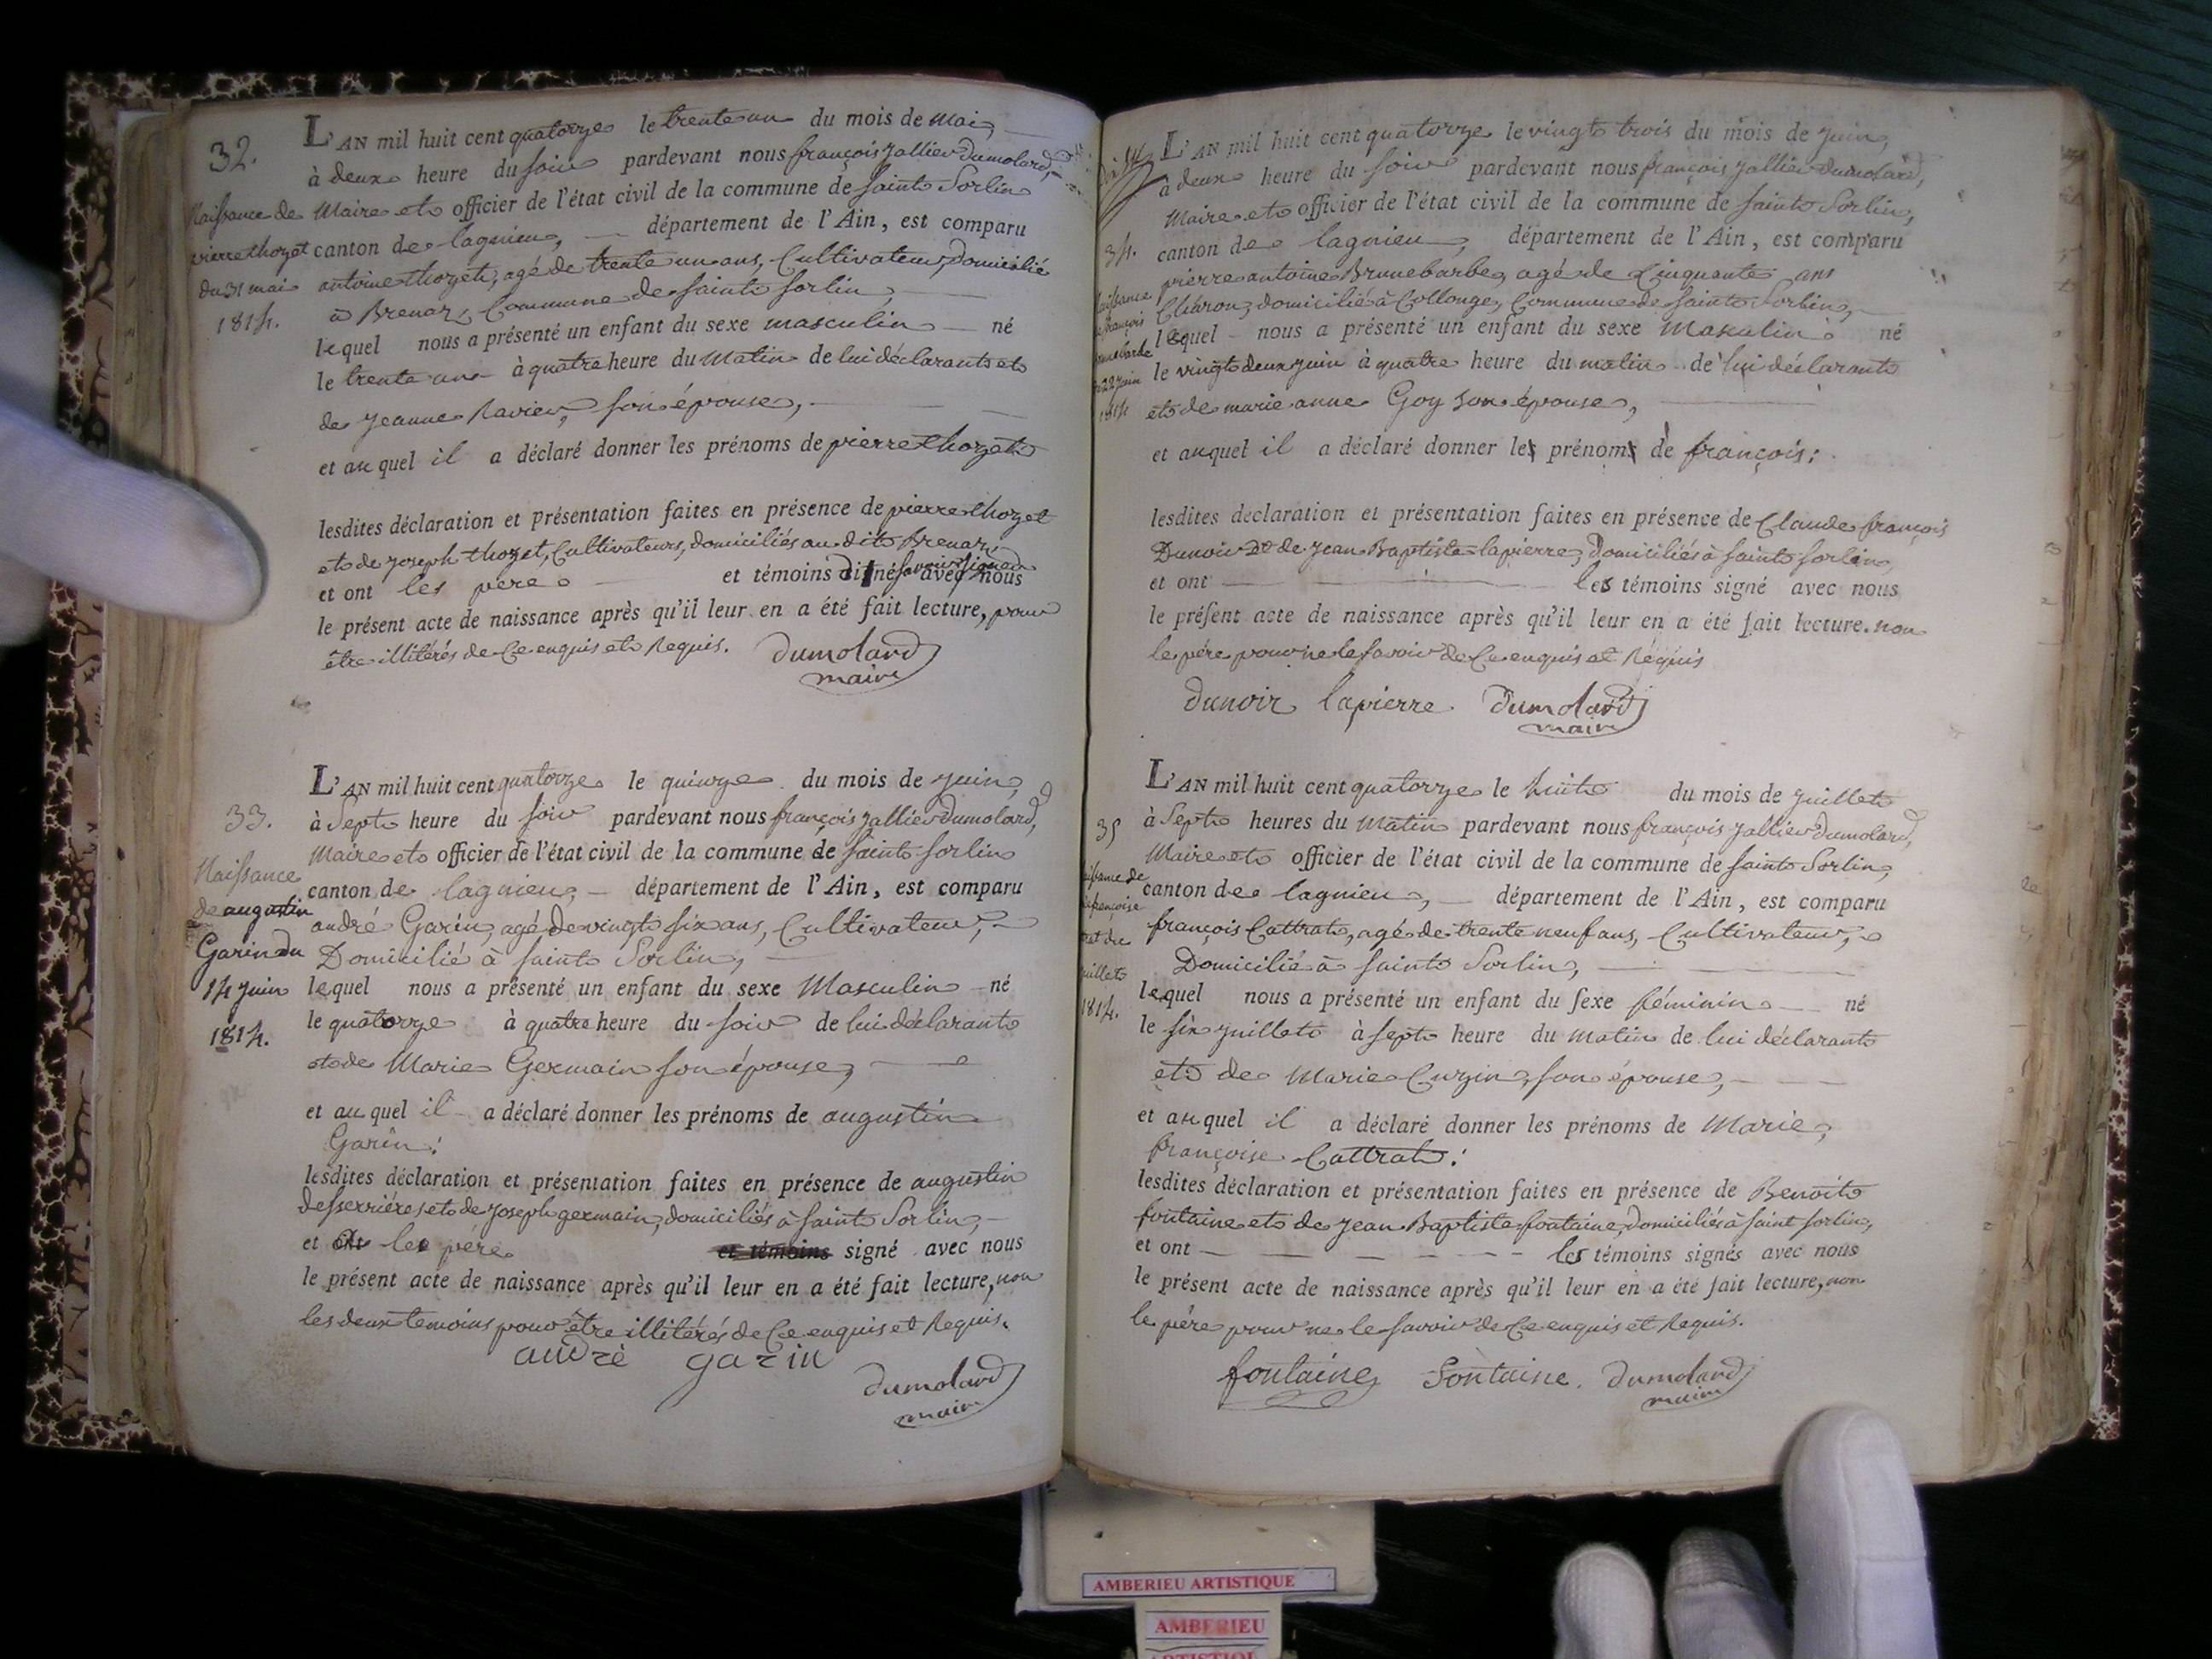 32.
Naissance de
pierre thozet
du 31 mai
1814.
L'AN mil huit cent quatorze le trente un du mois de Mai,
à deux heure du soir pardevant nous françois jallier Dumolard,
Maire et officier de l'état civil de la commune de saint Sorlin
canton de lagnieu, département de l'Ain, est comparu
antoine thozet, agé de trente un ans, Cultivateur, domicilié
à Brenaz, Commune de saint sorlin,
lequel nous a présenté un enfant du sexe masculin né
le trente un à quatre heure du Matin de lui déclarant et
de jeanne Ravier, son épouse,
et auquel il a déclaré donner les prénoms de pierre thozet
lesdites déclaration et présentation faites en présence de pierre thozet
et de joseph thozet, Cultivateurs, domiciliés au dit Brenaz,
et ont les père et témoins
le présent acte de naissance après qu'il leur en a été fait lecture, pour
être illitérés de Ce enquis et Requis. Dumolard
maire
33.
Naissance
de augustin
Garin du
14 juin
1814.
L'AN mil huit cent quatorze le quinze du mois de juin,
à Sept heure du soir pardevant nous françois jallier Dumolard,
Maire et officier de l'état civil de la commune de saint sorlin
canton de lagnieu, département de l'Ain, est comparu
andré Garin, agé de vingt six ans, Cultivateur,
Domicilié à saint Sorlin,
lequel nous a présenté un enfant du sexe Masculin né
le quatorze à quatre heure du soir de lui déclarant
et de Marie Germain son épouse,
et auquel il a déclaré donner les prénoms de augustin
Garin:
lesdites déclaration et présentation faites en présence de augustin
desserriére et de joseph germain, domiciliés à saint Sorlin,
et ont le père et témoins signé avec nous
le présent acte de naissance après qu'il leur en a été fait lecture, non
les deux temoins pour être illitérés de Ce enquis et Requis.
andré garin
Dumolard
maire
34.
françois
22 juin
1814
L'AN mil huit cent quatorze le vingt trois du mois de juin,
à deux heure du soir pardevant nous françois jallier Dumolard,
Maire et officier de l'état civil de la commune de saint Sorlin,
canton de lagnieu, département de l'Ain, est comparu
pierre antoine Brunebarbe, agé de Cinquante ans
domicilié à Collonge, Commune de saint Sorlin,
lequel nous a présenté un enfant du sexe Masculin né
le vingt deux juin à quatre heure du matin de lui déclarant
et de marie anne Goy son épouse,
et auquel il a déclaré donner les prénoms de françois:
lesdites déclaration et présentation faites en présence de Claude françois
Dunoir et de jean Baptiste lapierre, Domiciliés à saint sorlin,
et ont les témoins signé avec nous
le présent acte de naissance après qu'il leur en a été fait lecture. non
le père pour ne le savoir de Ce enquis et Requis
Dunoir lapierre Dumolard
maire
35
juillet
1814.
L'AN mil huit cent quatorze le huit du mois de juillet
à Sept heures du Matin pardevant nous françois jallier Dumolard,
Maire et officier de l'état civil de la commune de saint Sorlin,
canton de lagnieu, département de l'Ain, est comparu
françois Cattrat, agé de trente neuf ans, Cultivateur,
Domicilié à saint Sorlin,
lequel nous a présenté un enfant du sexe féminin né
le six juillet à sept heure du Matin de lui déclarant
et de Marie Cuzin, son épouse,
et auquel il a déclaré donner les prénoms de Marie,
françoise Cattrat:
lesdites déclaration et présentation faites en présence de Benoit
fontaine et de jean Baptiste fontaine, Domiciliés à saint sorlin,
et ont les témoins signés avec nous
le présent acte de naissance après qu'il leur en a été fait lecture, non
le père pour ne le savoir de Ce enquis et Requis.
fontaine fontaine. Dumolard
maire
AMBERIEU ARTISTIQUE
AMBERIEU
ARTISTIQUE